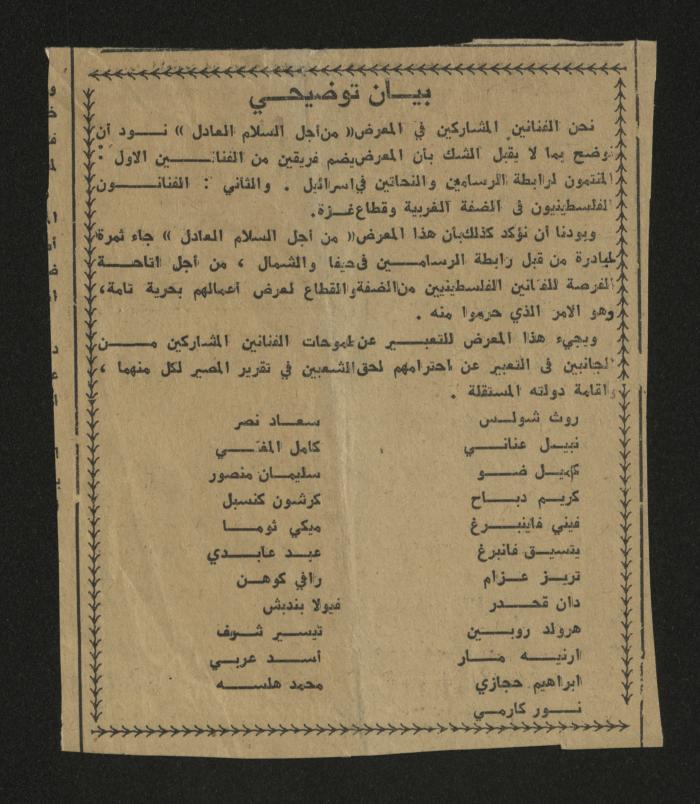 بيان توضيحي
نحن الفنانين المشاركين في المعرض «من أجل السلام العادل» نود أن
نوضح بما لا يقبل الشك بأن المعرض يضم فريقين من الفنانين الاول :
المنتمون لرابطة الرسامين والنحاتين في اسرائيل . والثاني : الفنانون
الفلسطينيون في الضفة الغربية وقطاع غزة.
وبودنا أن نؤكد كذلك بان هذا المعرض «من أجل السلام العادل» جاء ثمرة
لمبادرة من قبل رابطة الرسامين في حيفا والشمال ، من أجل اتاحة
الفرصة للفنانين الفلسطينيين من الضفة والقطاع لعرض أعمالهم بحرية تامة،
وهو الامر الذي حرموا منه .
ويجيء هذا المعرض للتعبير عن طموحات الفنانين المشاركين من
الجانبين في التعبير عن احترامهم لحق الشعبين في تقرير المصير لكل منهما ،
واقامة دولته المستقلة .
روث شولس
نبيل عناني
كميل ضو
كريم دباح
فيني فاينبرغ
يتسيق فانبرغ
تريز عزام
دان قحدر
هرولد روبين
ارنيه منار
ابراهيم حجازي
نور كارمي
سعاد نصر
كامل المغني
سليمان منصور
كرشون كنسبل
ميكي ثوما
عبد عابدي
رافي كوهن
فيولا بنديش
تيسير شرف
أسد عربي
محمد هلسه